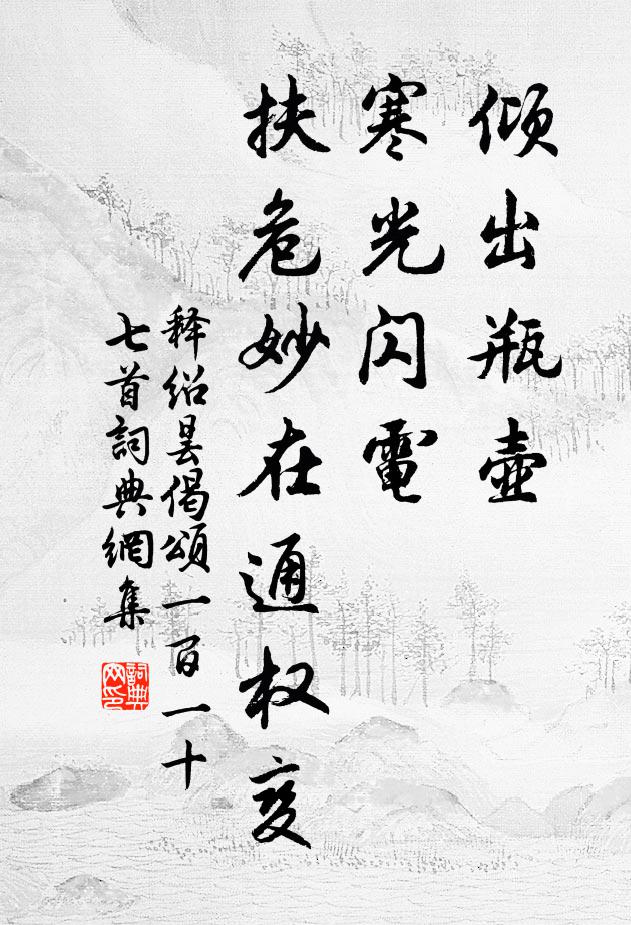 倾出瓶壶
寒光闪電
扶危妙在通权变
释绍昙偈颂一百一十
七首詞典網集
詞典
网印